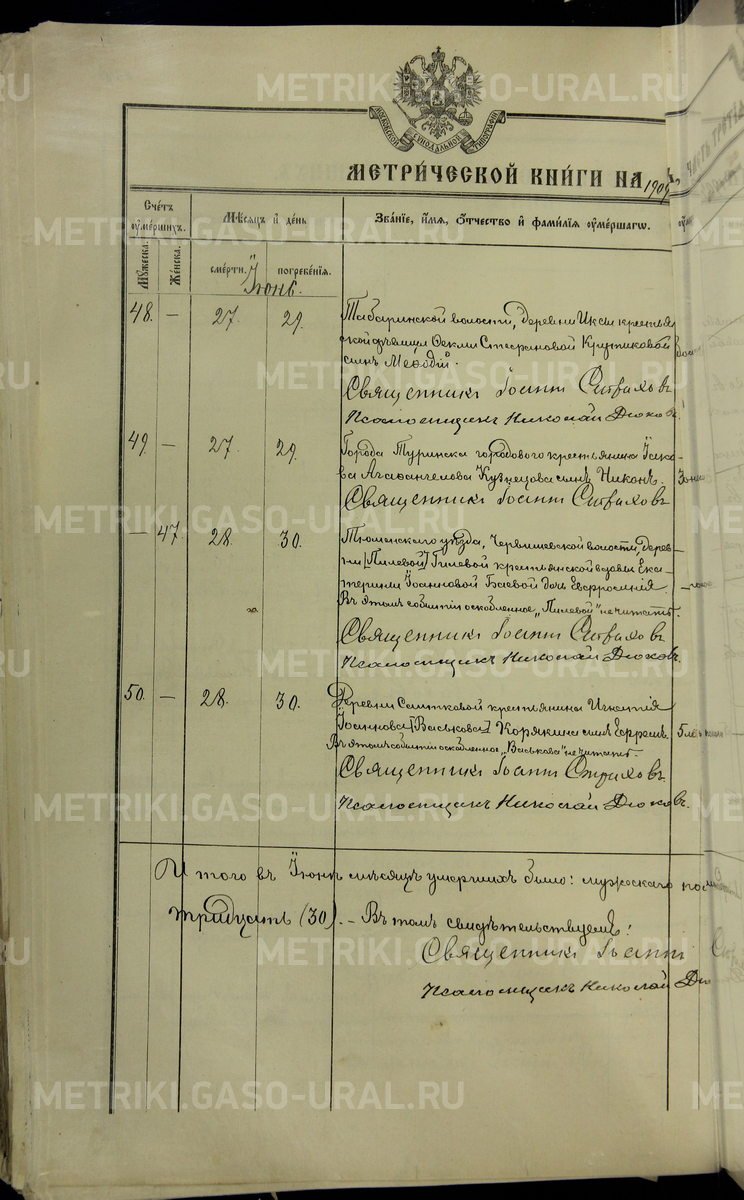 МОСКОВСКОЙ СѴНОДАЛЬНОЙ ТИПОГРАФІИ
МЕТРИ́ЧЕСКОЙ КНИ́ГИ НА 190
Сче́тъ ᲂу҆ме́ршихъ.
Мѣ́сѧцъ и҆ де́нь
Зва́нїе, и҆́мѧ, ѻ҆́тчество и҆ фами́лїѧ ᲂу҆ме́ршагѡ.
Мꙋ́жеска.
Же́нска.
сме́рти.
погребе́нїѧ.
Іюнь.
48. — 27. 29.
Табаринской волости, деревни Иксы крестьян
ской дѣвицы Феклы Стефановой Крутиковой
сынъ Меѳодій.
Священникъ Іоаннъ Страховъ
Псаломщикъ Николай Дюковъ
49. — 27. 29.
Города Туринска городового крестьянина Іако-
ва Агафангелова Кузнецова сынъ Никонъ.
Священникъ Іоаннъ Страховъ
— 47. 28. 30.
Тюменскаго уѣзда, Червишевской волости, дерев-
ни [Пилевой] Гилевой крестьянской вдовы Ека-
терины Іоанновой Баевой дочь Евфросинія.
Въ этомъ событіи оскобленное „Пилевой" не читать.
Священникъ Іоаннъ Страховъ
Псаломщикъ Николай Дюковъ.
50. — 28. 30.
Деревни Саитковой крестьянина Игнатія
Іоаннова [Васькова] Корякина сынъ Ефремъ.
Въ этомъ событіи оскобленное „Васькова" не читать.
Священникъ Іоаннъ Страховъ
Псаломщикъ Николай Дюковъ.
Итого въ Іюнѣ мѣсяцѣ умершихъ было: мужескаго пол
тридцать (30). — Въ томъ свидѣтельствуемъ:
Священникъ Іоаннъ
Псаломщикъ Николай Дю
METRIKI.GASO-URAL.RU